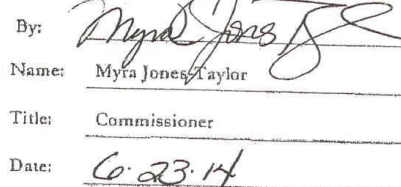 By: Myra Jones Taylor
Name: Myra Jones-Taylor
Title: Commissioner
Date: 6.23.14